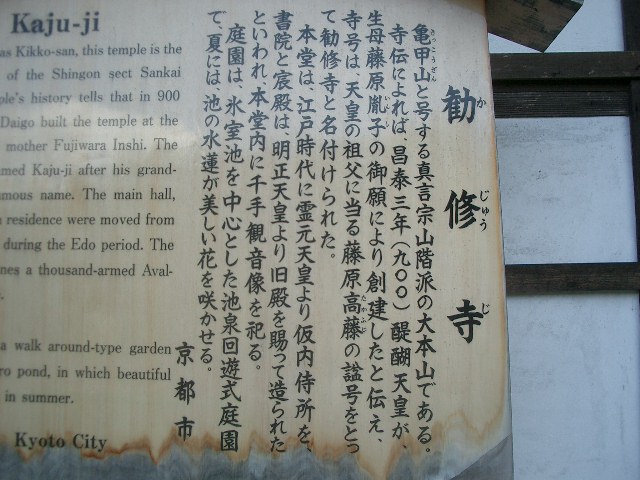 勧修寺
か じゅう じ
亀甲山と号する真言宗山階派の大本山である。
きっこうざん
寺伝によれば、昌泰三年(九〇〇)醍醐天皇が、
生母藤原胤子の御願により創建したと伝え、
いんし
寺号は、天皇の祖父に当る藤原高藤の諡号をとっ
たかふじ
て勧修寺と名付けられた。
本堂は、江戸時代に霊元天皇より仮内侍所を、
書院と宸殿は、明正天皇より旧殿を賜って造られた
といわれ、本堂内に千手観音像を祀る。
庭園は、氷室池を中心とした池泉回遊式庭園
で、夏には、池の水蓮が美しい花を咲かせる。
京都市
Kaju-ji
as Kikko-san, this temple is the
of the Shingon sect Sankai
ple's history tells that in 900
Daigo built the temple at the
mother Fujiwara Inshi. The
med Kaju-ji after his grand-
amous name. The main hall,
residence were moved from
during the Edo period. The
nes a thousand-armed Aval-
a walk around-type garden
ro pond, in which beautiful
in summer.
Kyoto City